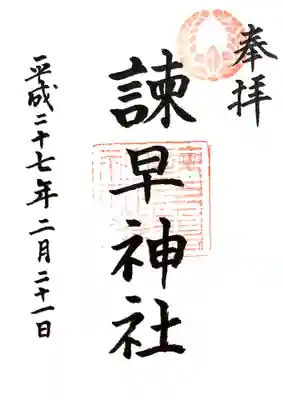 奉拝
諫早神社
平成二十七年二月二十一日